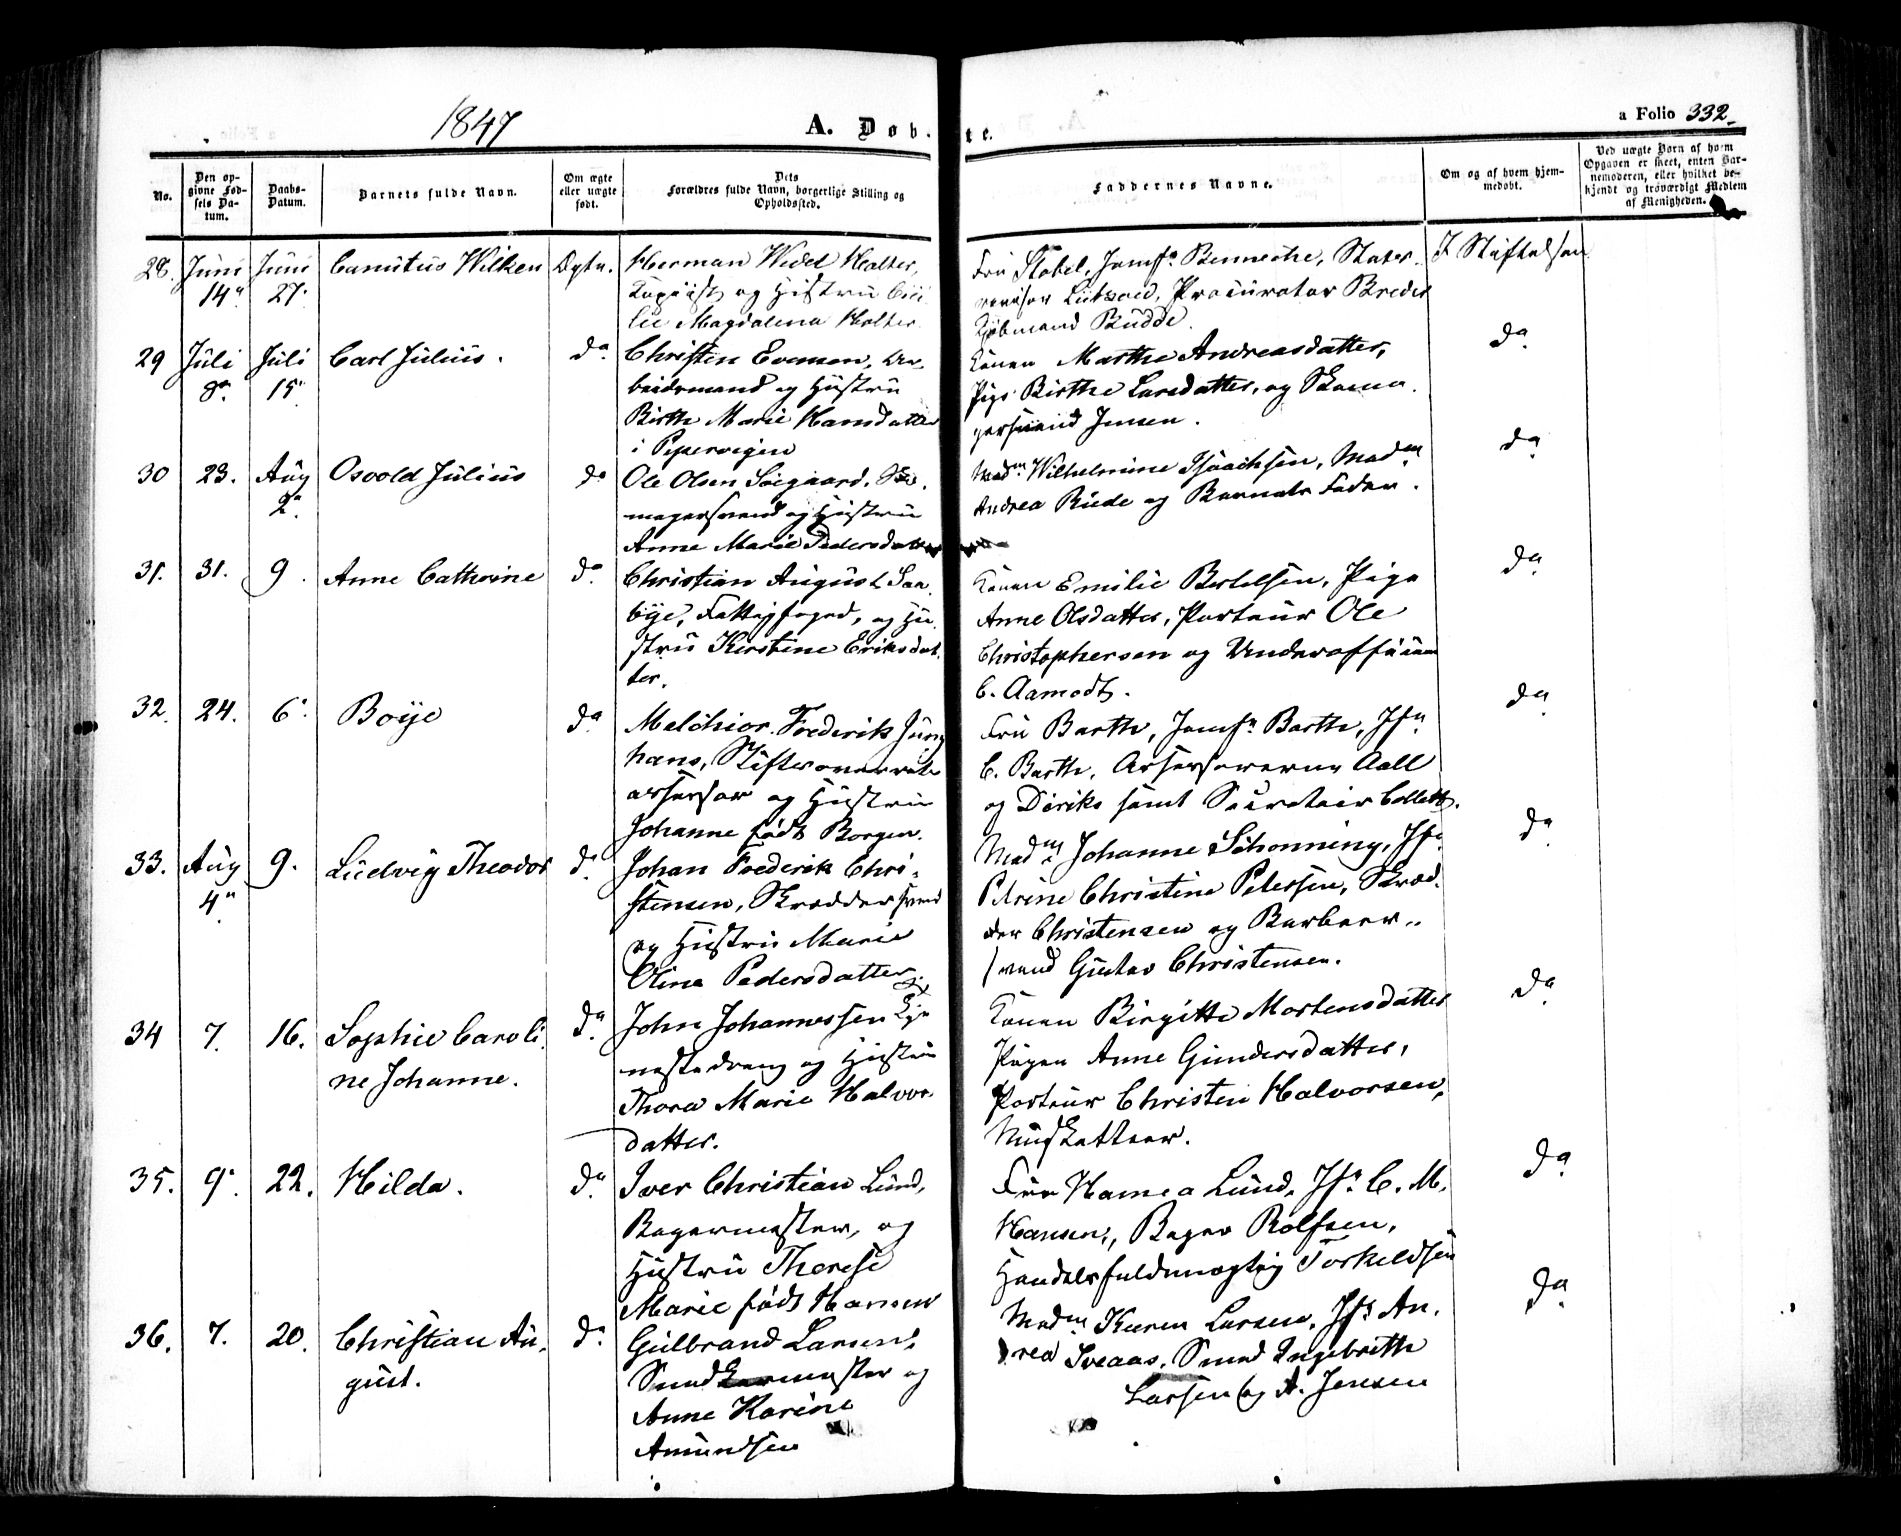 1847
A. Døb-
te.
a Folio 332
No.
Den op-
givne Fød-
sels Da-
tum.
Daabs-
Datum.
Barnets fulde Navn.
Om ægte
eller uægte
født.
Dets
Forældres fulde Navn, borgerlige Stilling og
Opholdssted.
Faddernes Navne.
Om og af hvem hjem-
medøbt.
Ved uægte Børn af hvem
Opgaven er skeet, enten Bar-
nemoderen, eller hvilket be-
kjendt og troværdigt Medlem
af Menigheden.
28. Juni 14de Juni 27. Canutus Wilken Ægte.
Herman Wedel Holter,
Kopiist og Hustru
Magdalena Holter.
Fru Stabel, Jomfr.
Procurator
Kjøbmand Budde.
29 Juli 8de Juli 15. Carl Julius. do
Christen Evensen, Ar-
beidsmand og Hustru
Birthe Marie Hansdatter
i Pipervigen
Konen Marthe Andreasdatter,
Pige Birthe Larsdatter, og Skoma-
gersvend Jensen.
do
30 23. Aug 2. Osvold Julius do
Ole Olsen Siegaard, Sko-
magersvend og Hustru
Anne Marie Pedersdatter
Madm. Wilhelmine Isaachsen, Madm
Andrea Rude og Barnets Fader.
do
31. 31. 9. Anne Cathrine do
Christian August Saa-
bye, Fattigfoged, og Hu-
stru Kirstine Eriksdat-
ter.
Konen Emilie Bertelsen, Pige
Anne Olsdatter, Porteur Ole
Christophersen og Underofficeer
C. Aamodt.
do
32. 24. 6. Boye do
Melchior Frederik Jung
hans, Stiftsoverrets
assessor og Hustru
Johanne født Borgen.
Fru Barth, Jomfr. Barth, Jfr
C. Barth, Assessorerne Aall
og Diriks samt Secretair Collett.
do
33. Aug 4de 9. Ludvig Theodor do
Johan Frederik Chri-
stensen, Skræddersvend
og Hustru Marie
Oline Pedersdatter.
Madm Johanne Schonning, Jfr.
Petrine Christine Petersen, Skræd-
der Christensen og Barbeer-
svend Gustav Christensen.
do
34 7. 16. Sophie Caroli-
ne Johanne. do
John Johannessen
og Hustru
Thora Marie Halvor-
datter.
Konen Birgitte Mortensdatter
Pigen Anne Gundersdatter,
Porteur Christen Halvorsen,
Muskatteer.
do
35. 9. 22. Hilda. do
Iver Christian Lund,
Bagermester, og
Hustru Therese
Marie født Hansen
Fru Hanna Lund, Jfr. C. M.
Hansen, Bager Rolfsen,
Handelsfuldmægtig Torkeldsen
do
36. 7. 20. Christian Au-
gust. do
Gulbrand Larsen,
Smedkermester og
Anne Karine
Amundsen
Madm. Karen Larsen, Jfr An-
drea Sveaas, Smed Ingebreth
Larsen og A. Jensen
do